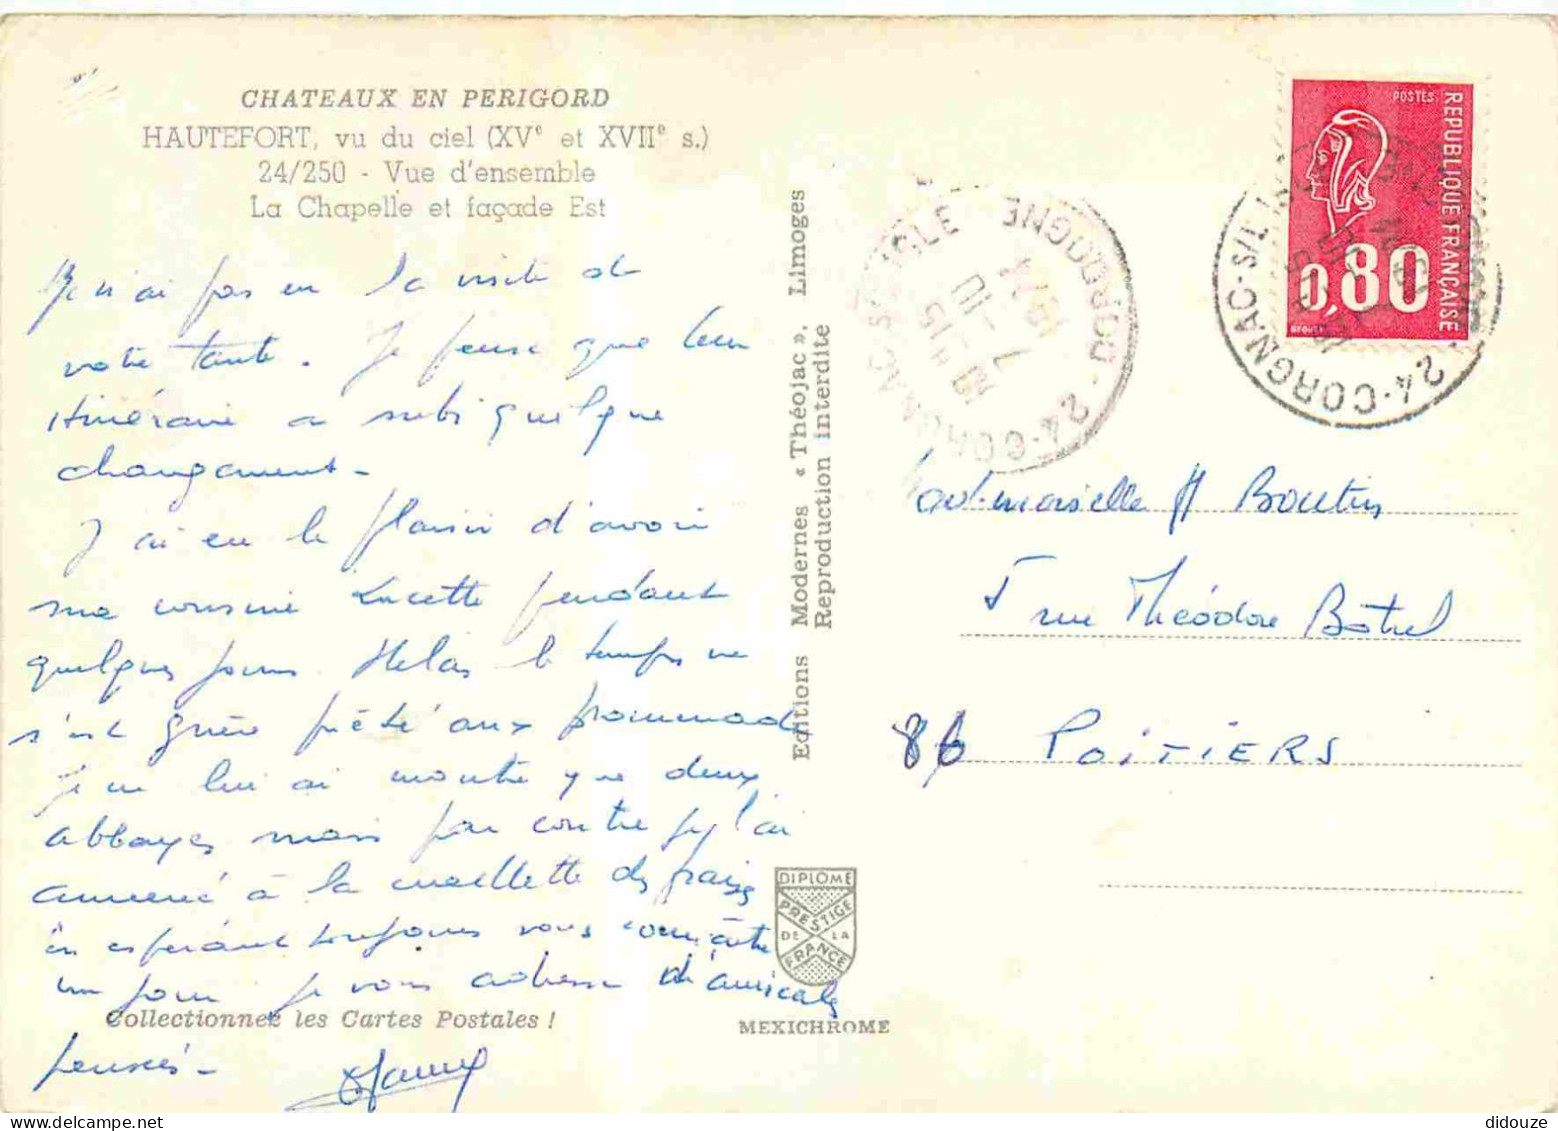 CHATEAUX EN PERIGORD
HAUTEFORT, vu du ciel (XVe et XVIIe s.)
24/250 - Vue d'ensemble
La Chapelle et façade Est
Je n'ai pas eu la visite de
votre tante. Je pense que leur
itinéraire a subi quelque
changement -
J'ai eu le plaisir d'avoir
ma cousine Lucette pendant
quelques jours. Hélas le temps ne
s'est guère prêté aux promenad
Je ne lui ai montré que deux
abbayes mais par contre j'l'ai
amené à la cueillette des fraises
en espérant toujours vous connaître
un jour je vous adresse d'amicales
pensées -
Collectionnez les Cartes Postales !
Editions Modernes « Théojac », Limoges
Reproduction interdite
DIPLOME
PRESTIGE
DE LA
FRANCE
MEXICHROME
POSTES
REPUBLIQUE FRANÇAISE
0,80
24 - CORGNAC - S/L'ISLE
24 - CORGNAC S/L'ISLE DORDOGNE
Mademoiselle H Boutin
5 rue Théodore Botrel
86 POITIERS
didouze